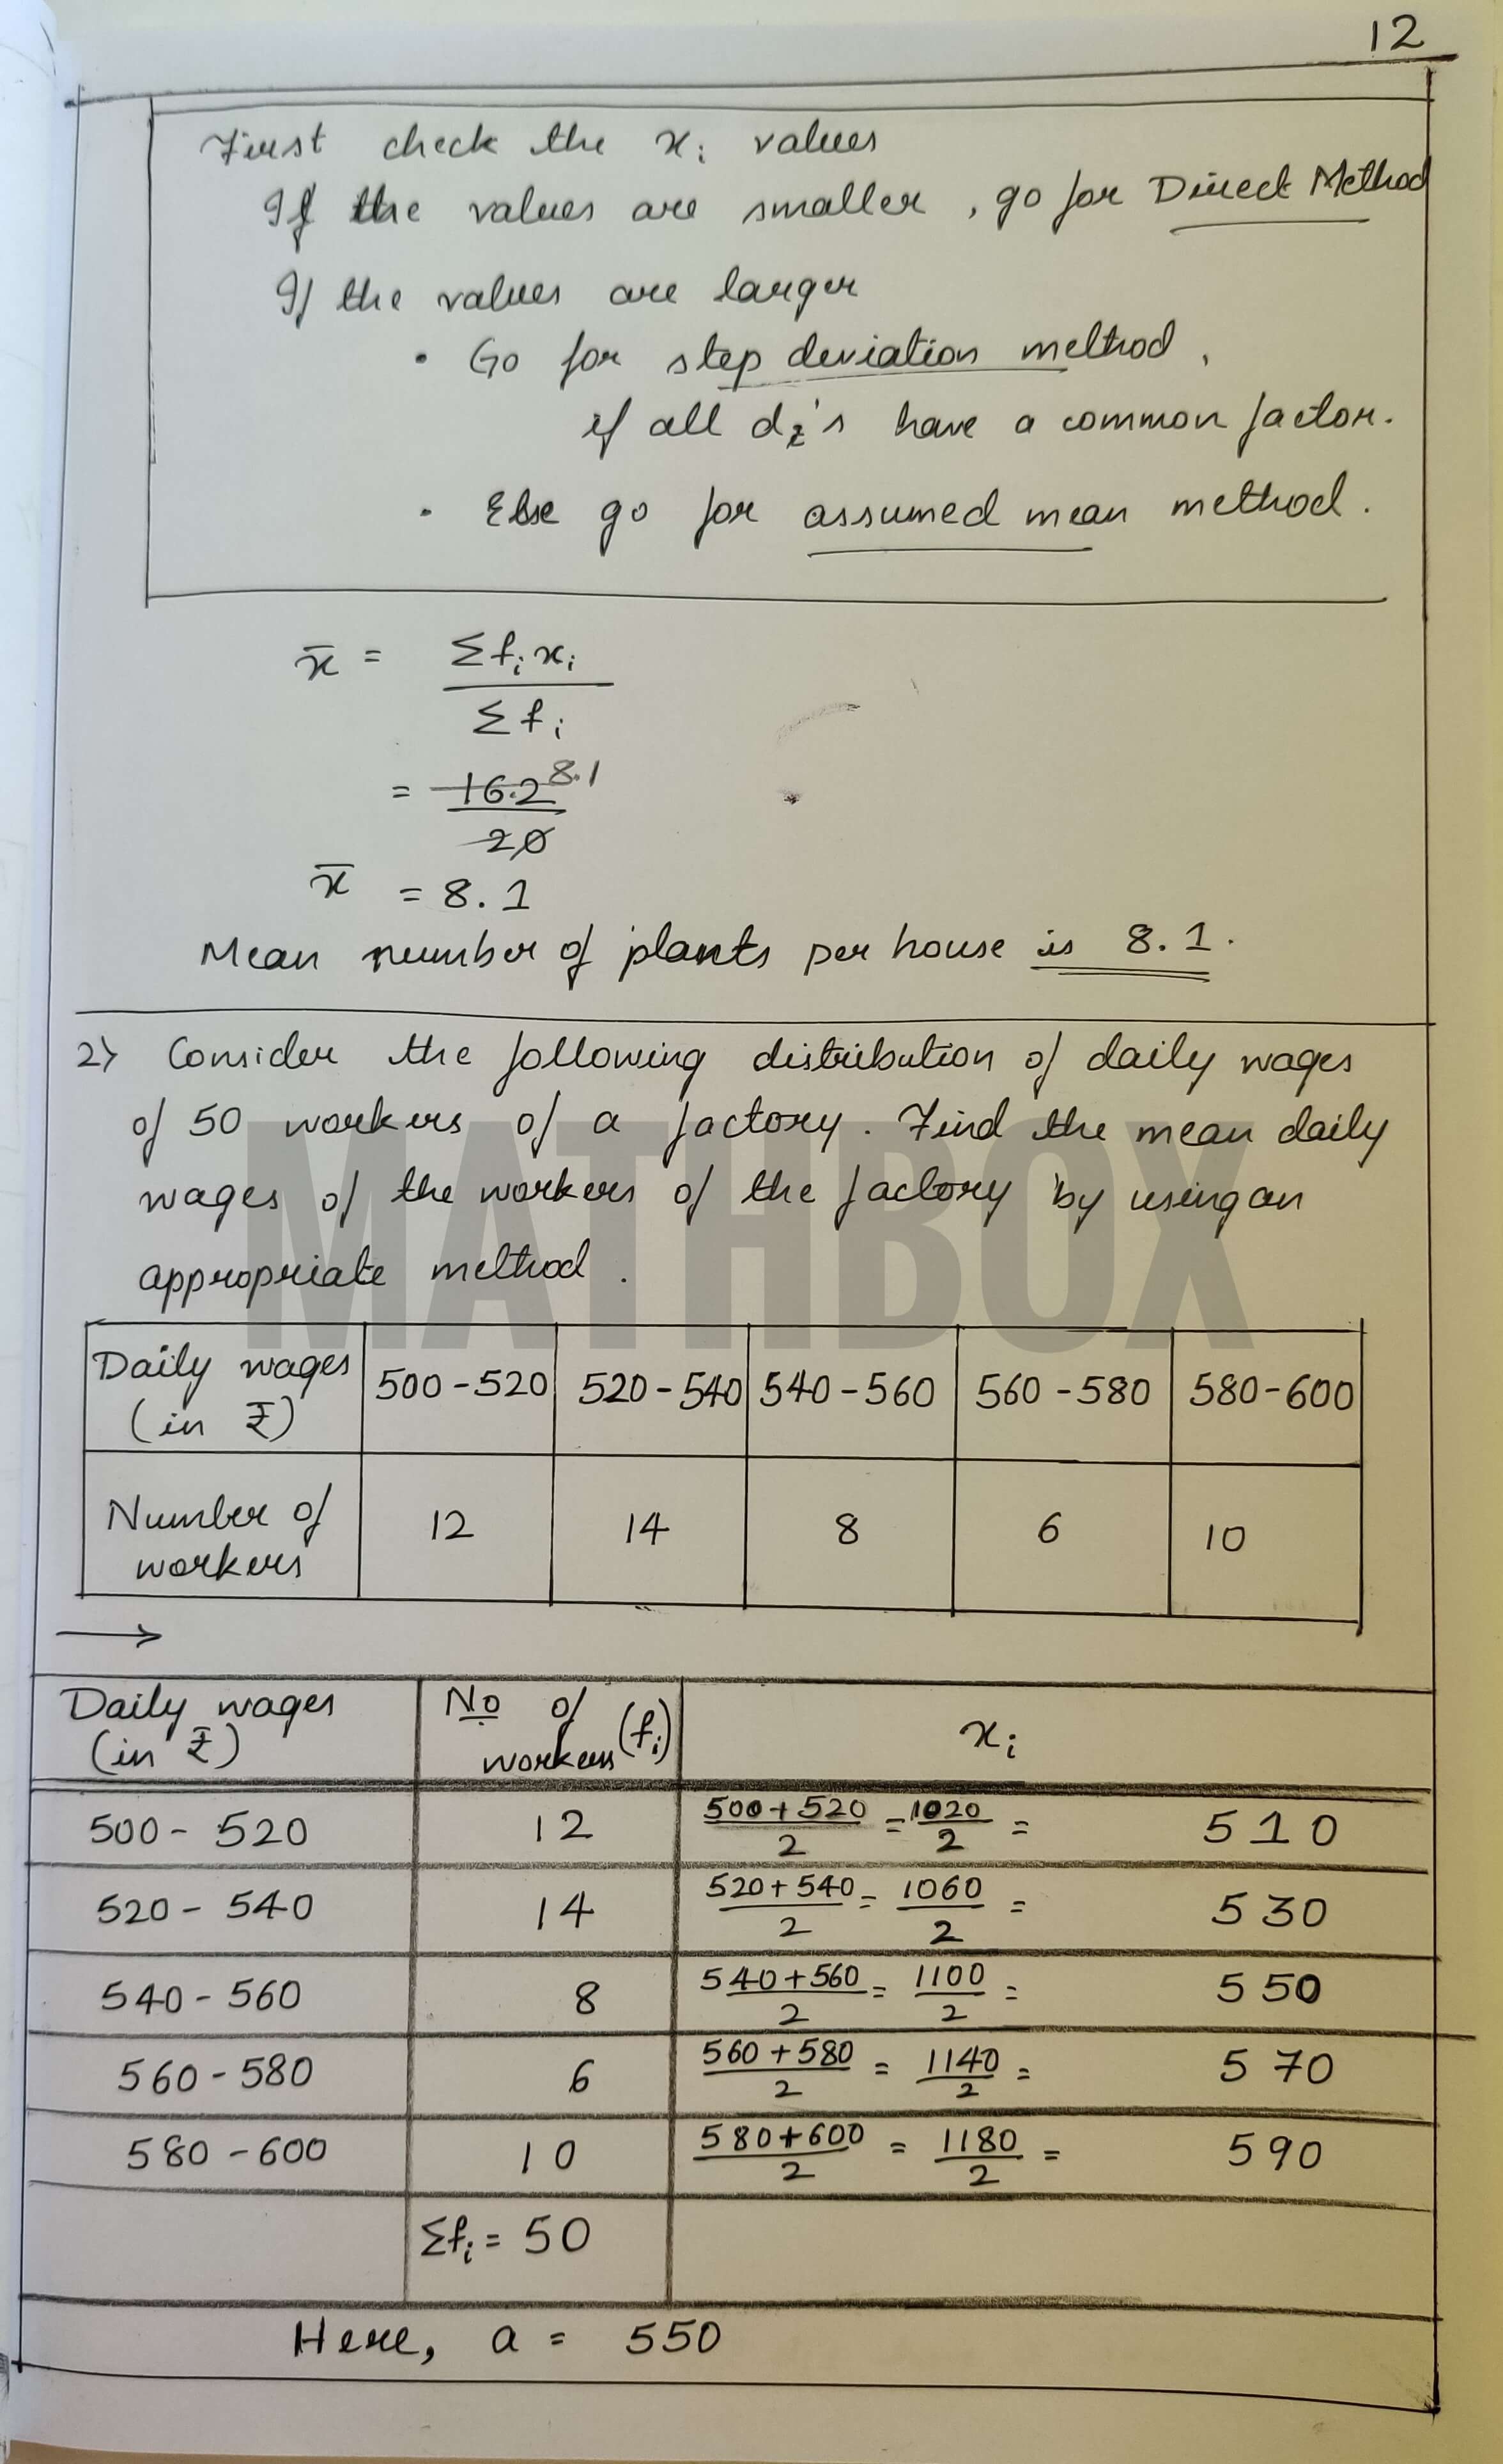 12
First check the xi values
If the values are smaller, go for Direct Method
If the values are larger
• Go for step deviation method,
if all di's have a common factor.
• Else go for assumed mean method.
x̄ = Σfixi
Σfi
= 16.2 8.1
20
x̄ = 8.1
Mean number of plants per house is 8.1.
2) Consider the following distribution of daily wages
of 50 workers of a factory. Find the mean daily
wages of the workers of the factory by using an
appropriate method.
MATHBOX
Daily wages (in ₹) 500-520 520-540 540-560 560-580 580-600
Number of workers 12 14 8 6 10
→
Daily wages (in ₹) No of workers (fi) xi
500-520 12 500+520/2 = 1020/2 = 510
520-540 14 520+540/2 = 1060/2 = 530
540-560 8 540+560/2 = 1100/2 = 550
560-580 6 560+580/2 = 1140/2 = 570
580-600 10 580+600/2 = 1180/2 = 590
Σfi = 50
Here, a = 550